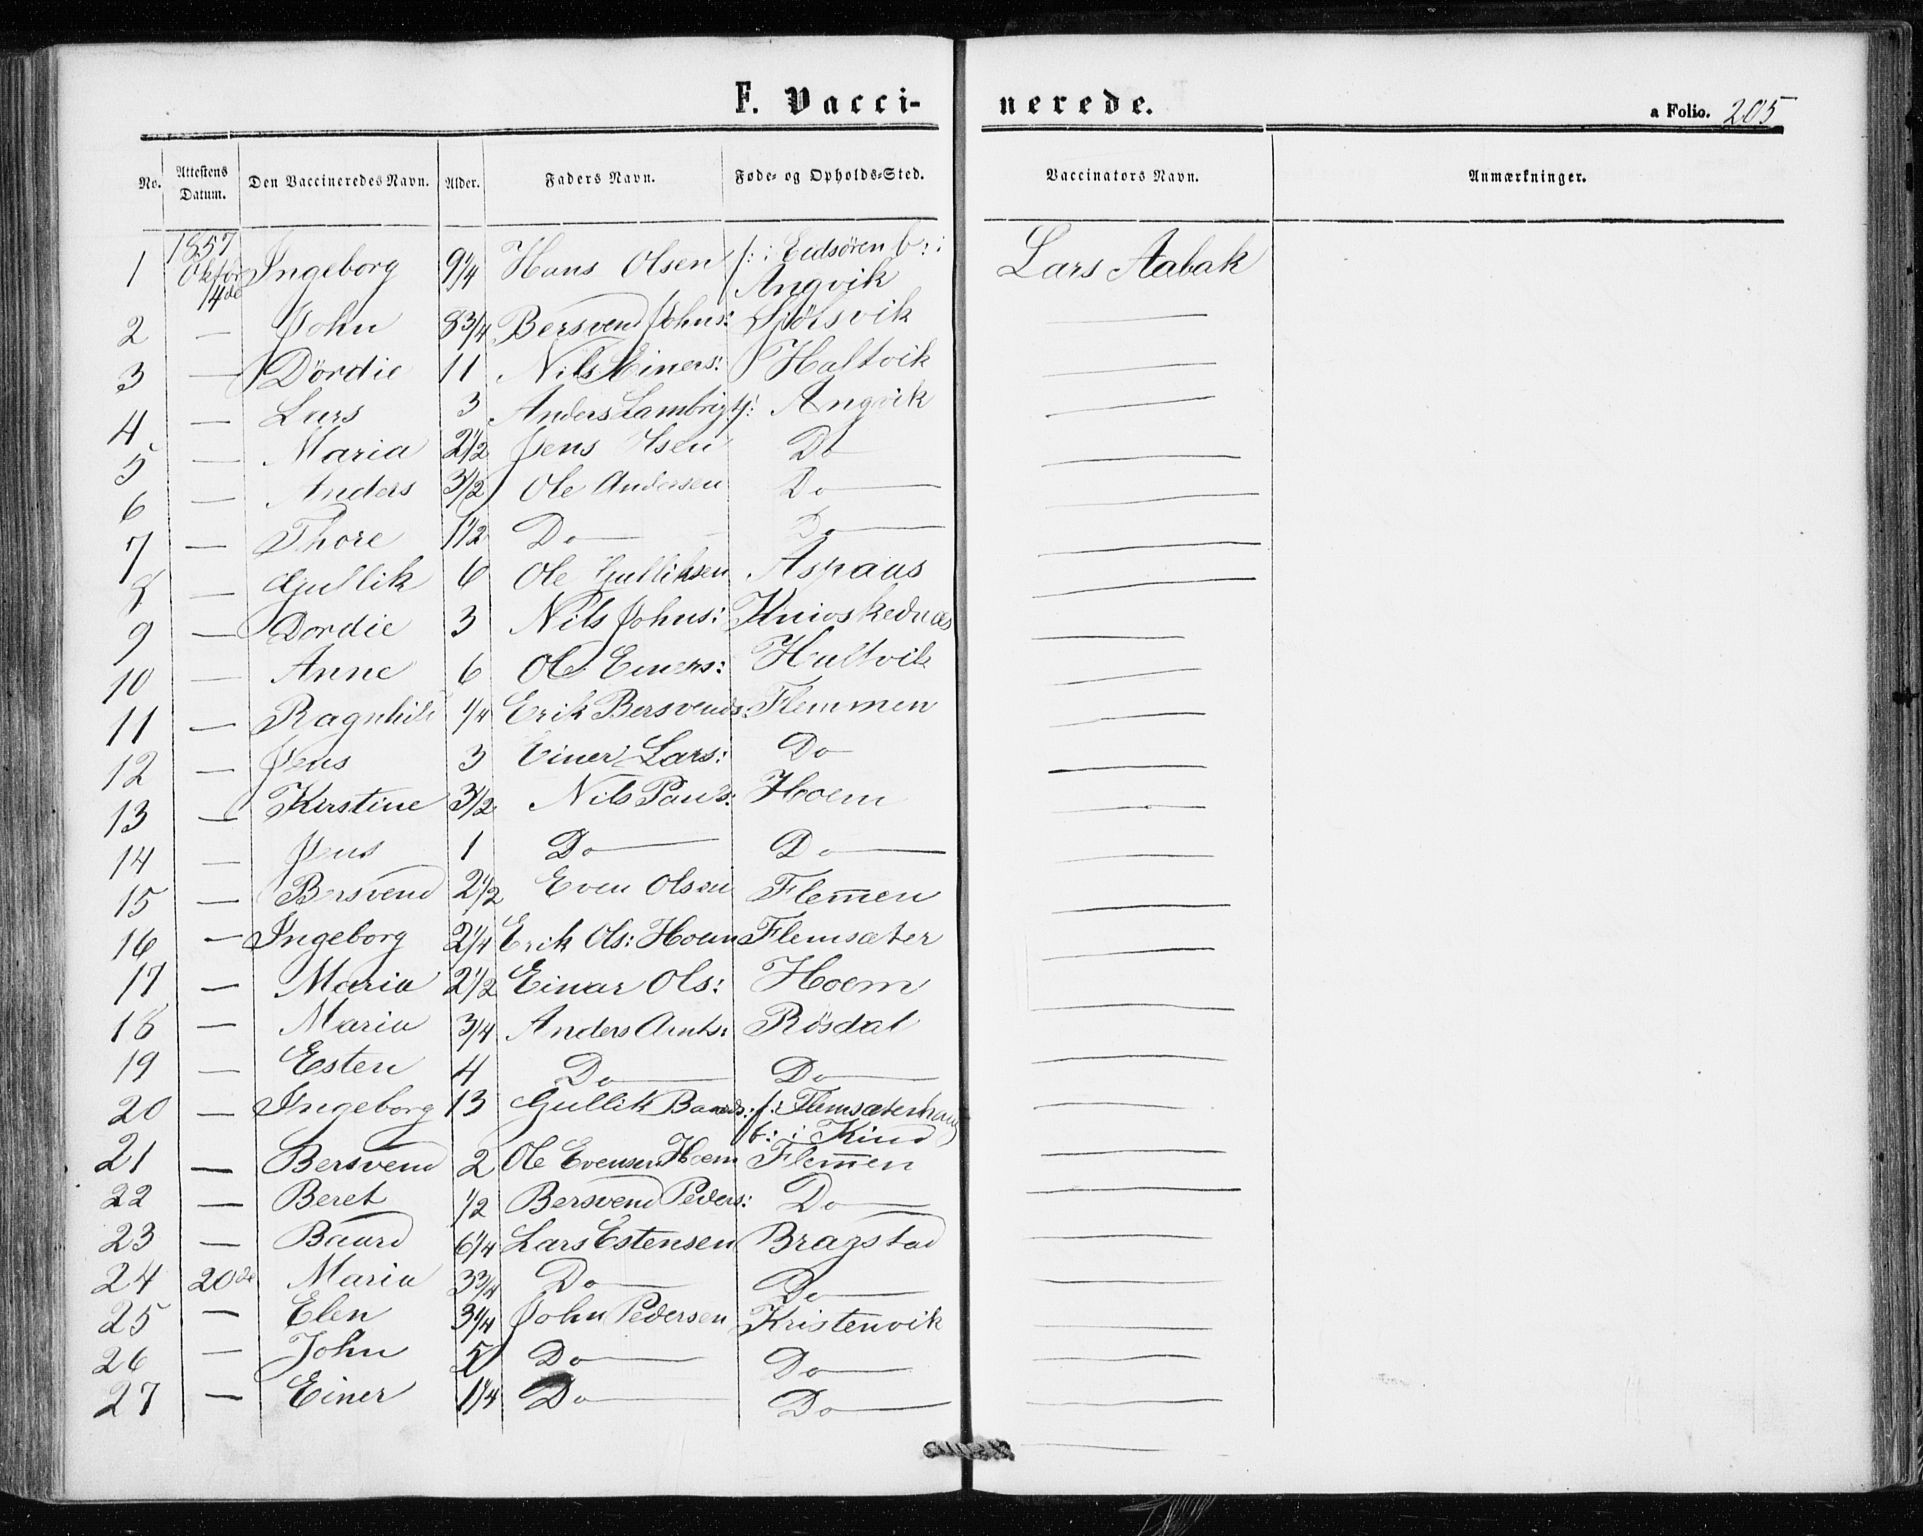 F. Vacci- nerede. a Folio. 205
No. Attestens Datum. Den Vaccineredes Navn. Alder. Faders Navn. Føde- og Opholds-Sted. Vaccinators Navn. Anmærkninger.
1857
1 Oktbr 14de Ingeborg 9 1/4 Hans Olsen f: i Eidsören b: i Angvik Lars Aabak
2 — John 8 3/4 Bersvend Johns: —
3 — Dördie 11 Nils Einers: Haltvik —
4 — Lars 3 Anders Angvik —
5 — Maria 2 1/2 Jens Olsen Do —
6 — Anders 3 1/2 Ole Andersen Do —
7 — Thore 1 1/2 Do — Do —
8 — Gullik 6 Ole Gulliksen Aspaas —
9 — Dordie 3 Nils Johns: —
10 — Anne 6 Ole Einers: Haltvik —
11 — Ragnhild 1/4 Erik Bersvends: Flemmen —
12 — Jens 3 Einer Lars: Do —
13 — Kirstine 3 1/2 Nils Hoem —
14 — Jens 1 Do — Do —
15 — Bersvend 2 1/2 Even Olsen Flem̅en —
16 — Ingeborg 2 1/4 Erik Ols: Hoem Flemsæter —
17 — Maria 2 1/2 Einar Ols: Hoem —
18 — Maria 3/4 Anders Arnts: Rösdal —
19 — Esten 4 Do — Do —
20 — Ingeborg 13 Gullik Baards: f: i Flemsæterhaug b: i Kind —
21 — Bersvend 2 Ole Evensen Hoem Flem̅en —
22 — Beret 1/2 Bersvend Peders: Do —
23 — Baard 6 1/4 Lars Estensen Bragstad —
24 20de Maria 3 3/4 Do — Do —
25 — Elen 3 1/4 John Pedersen Kristenvik —
26 — John 5 Do — Do —
27 — Einer 1 1/4 Do — Do —